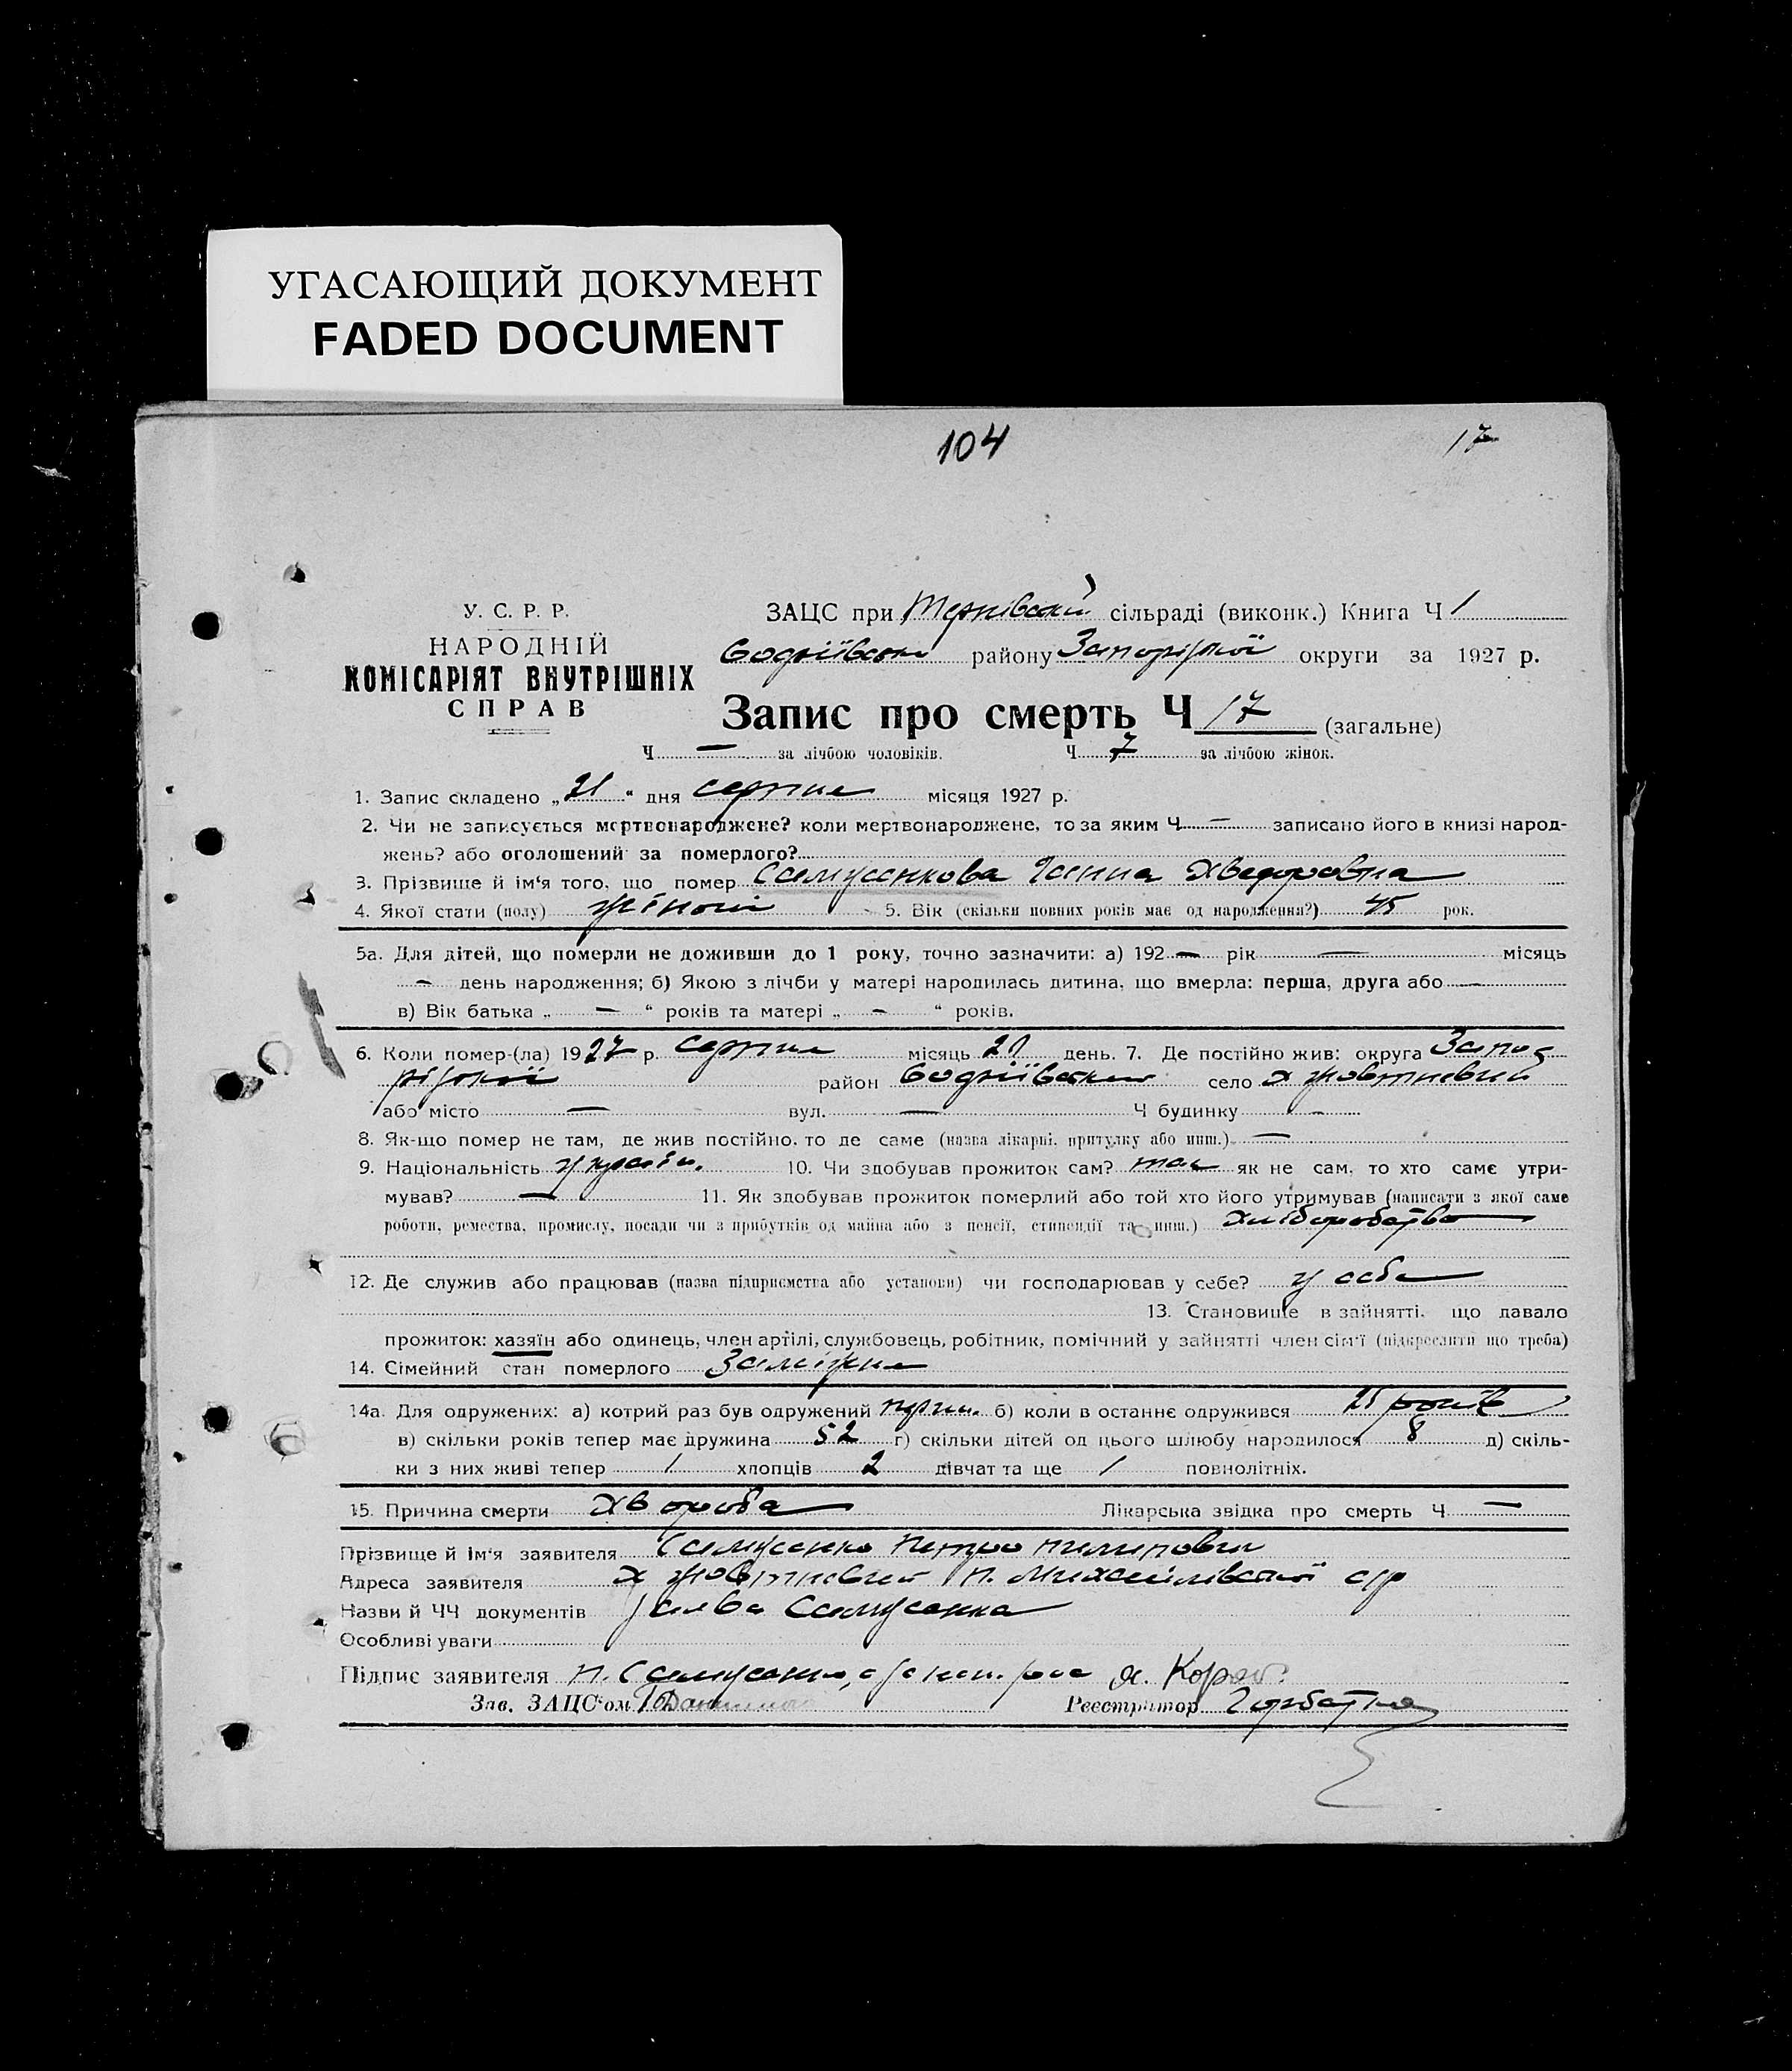 УГАСАЮЩИЙ ДОКУМЕНТ
FADED DOCUMENT
104
17
У. С. Р. Р.
НАРОДНІЙ
КОМІСАРІЯТ ВНУТРІШНІХ
СПРАВ
ЗАЦС при Тернівській сільраді (виконк.) Книга Ч 1
району Запорізької округи за 1927 р.
Запис про смерть Ч 17 (загальне)
Ч — за лічбою чоловіків. Ч 7 за лічбою жінок.
1. Запис складено „21“ дня серпня місяця 1927 р.
2. Чи не записується мертвонароджене? коли мертвонароджене, то за яким Ч — записано його в книзі народ-
жень? або оголошений за померлого?
3. Прізвище й ім‘я того, що помер Самусенкова Ганна Хведоровна
4. Якої стати (полу) жіночої 5. Вік (скільки повних років має од народження?) 45 рок.
5а. Для дітей, що померли не доживши до 1 року, точно зазначити: а) 192 — рік — місяць
— день народження; б) Якою з лічби у матері народилась дитина, що вмерла: перша, друга або —
в) Вік батька „ — “ років та матері „ — “ років.
6. Коли помер-(ла) 1927 р. серпня місяць 20 день. 7. Де постійно жив: округа Запо-
різької район село х Жовтневий
або місто — вул. — Ч будинку —
8. Як-що помер не там, де жив постійно, то де саме (назва лікарні, притулку або инш.) —
9. Національність україн. 10. Чи здобував прожиток сам? так як не сам, то хто саме утри-
мував? — 11. Як здобував прожиток померлий або той хто його утримував (написати з якої саме
роботи, ремества, промислу, посади чи з прибутків од майна або з пенсії, стипендії та инш.) хліборобство
12. Де служив або працював (назва підприємства або установи) чи господарював у себе? у себе
13. Становище в зайнятті, що давало
прожиток: хазяїн або одинець, член артілі, службовець, робітник, помічний у зайнятті член сім‘ї (підкреслити що треба)
14. Сімейний стан померлого Заміжня
14а. Для одружених: а) котрий раз був одружений перш. б) коли в останнє одружився 25 років
в) скільки років тепер має дружина 52 г) скільки дітей од цього шлюбу народилося 8 д) скіль-
ки з них живі тепер 1 хлопців 2 дівчат та ще 1 повнолітніх.
15. Причина смерти хвороба Лікарська звідка про смерть Ч —
Прізвище й ім‘я заявителя Самусенко Петро Пилипович
Адреса заявителя х Жовтневий Н. Михайлівської с/р
Назви й ЧЧ документів заява Самусенка
Особливі уваги
Підпис заявителя П. Самусенко, Я. Короб
Зав. ЗАЦС‘ом Реєстратор Горбатко